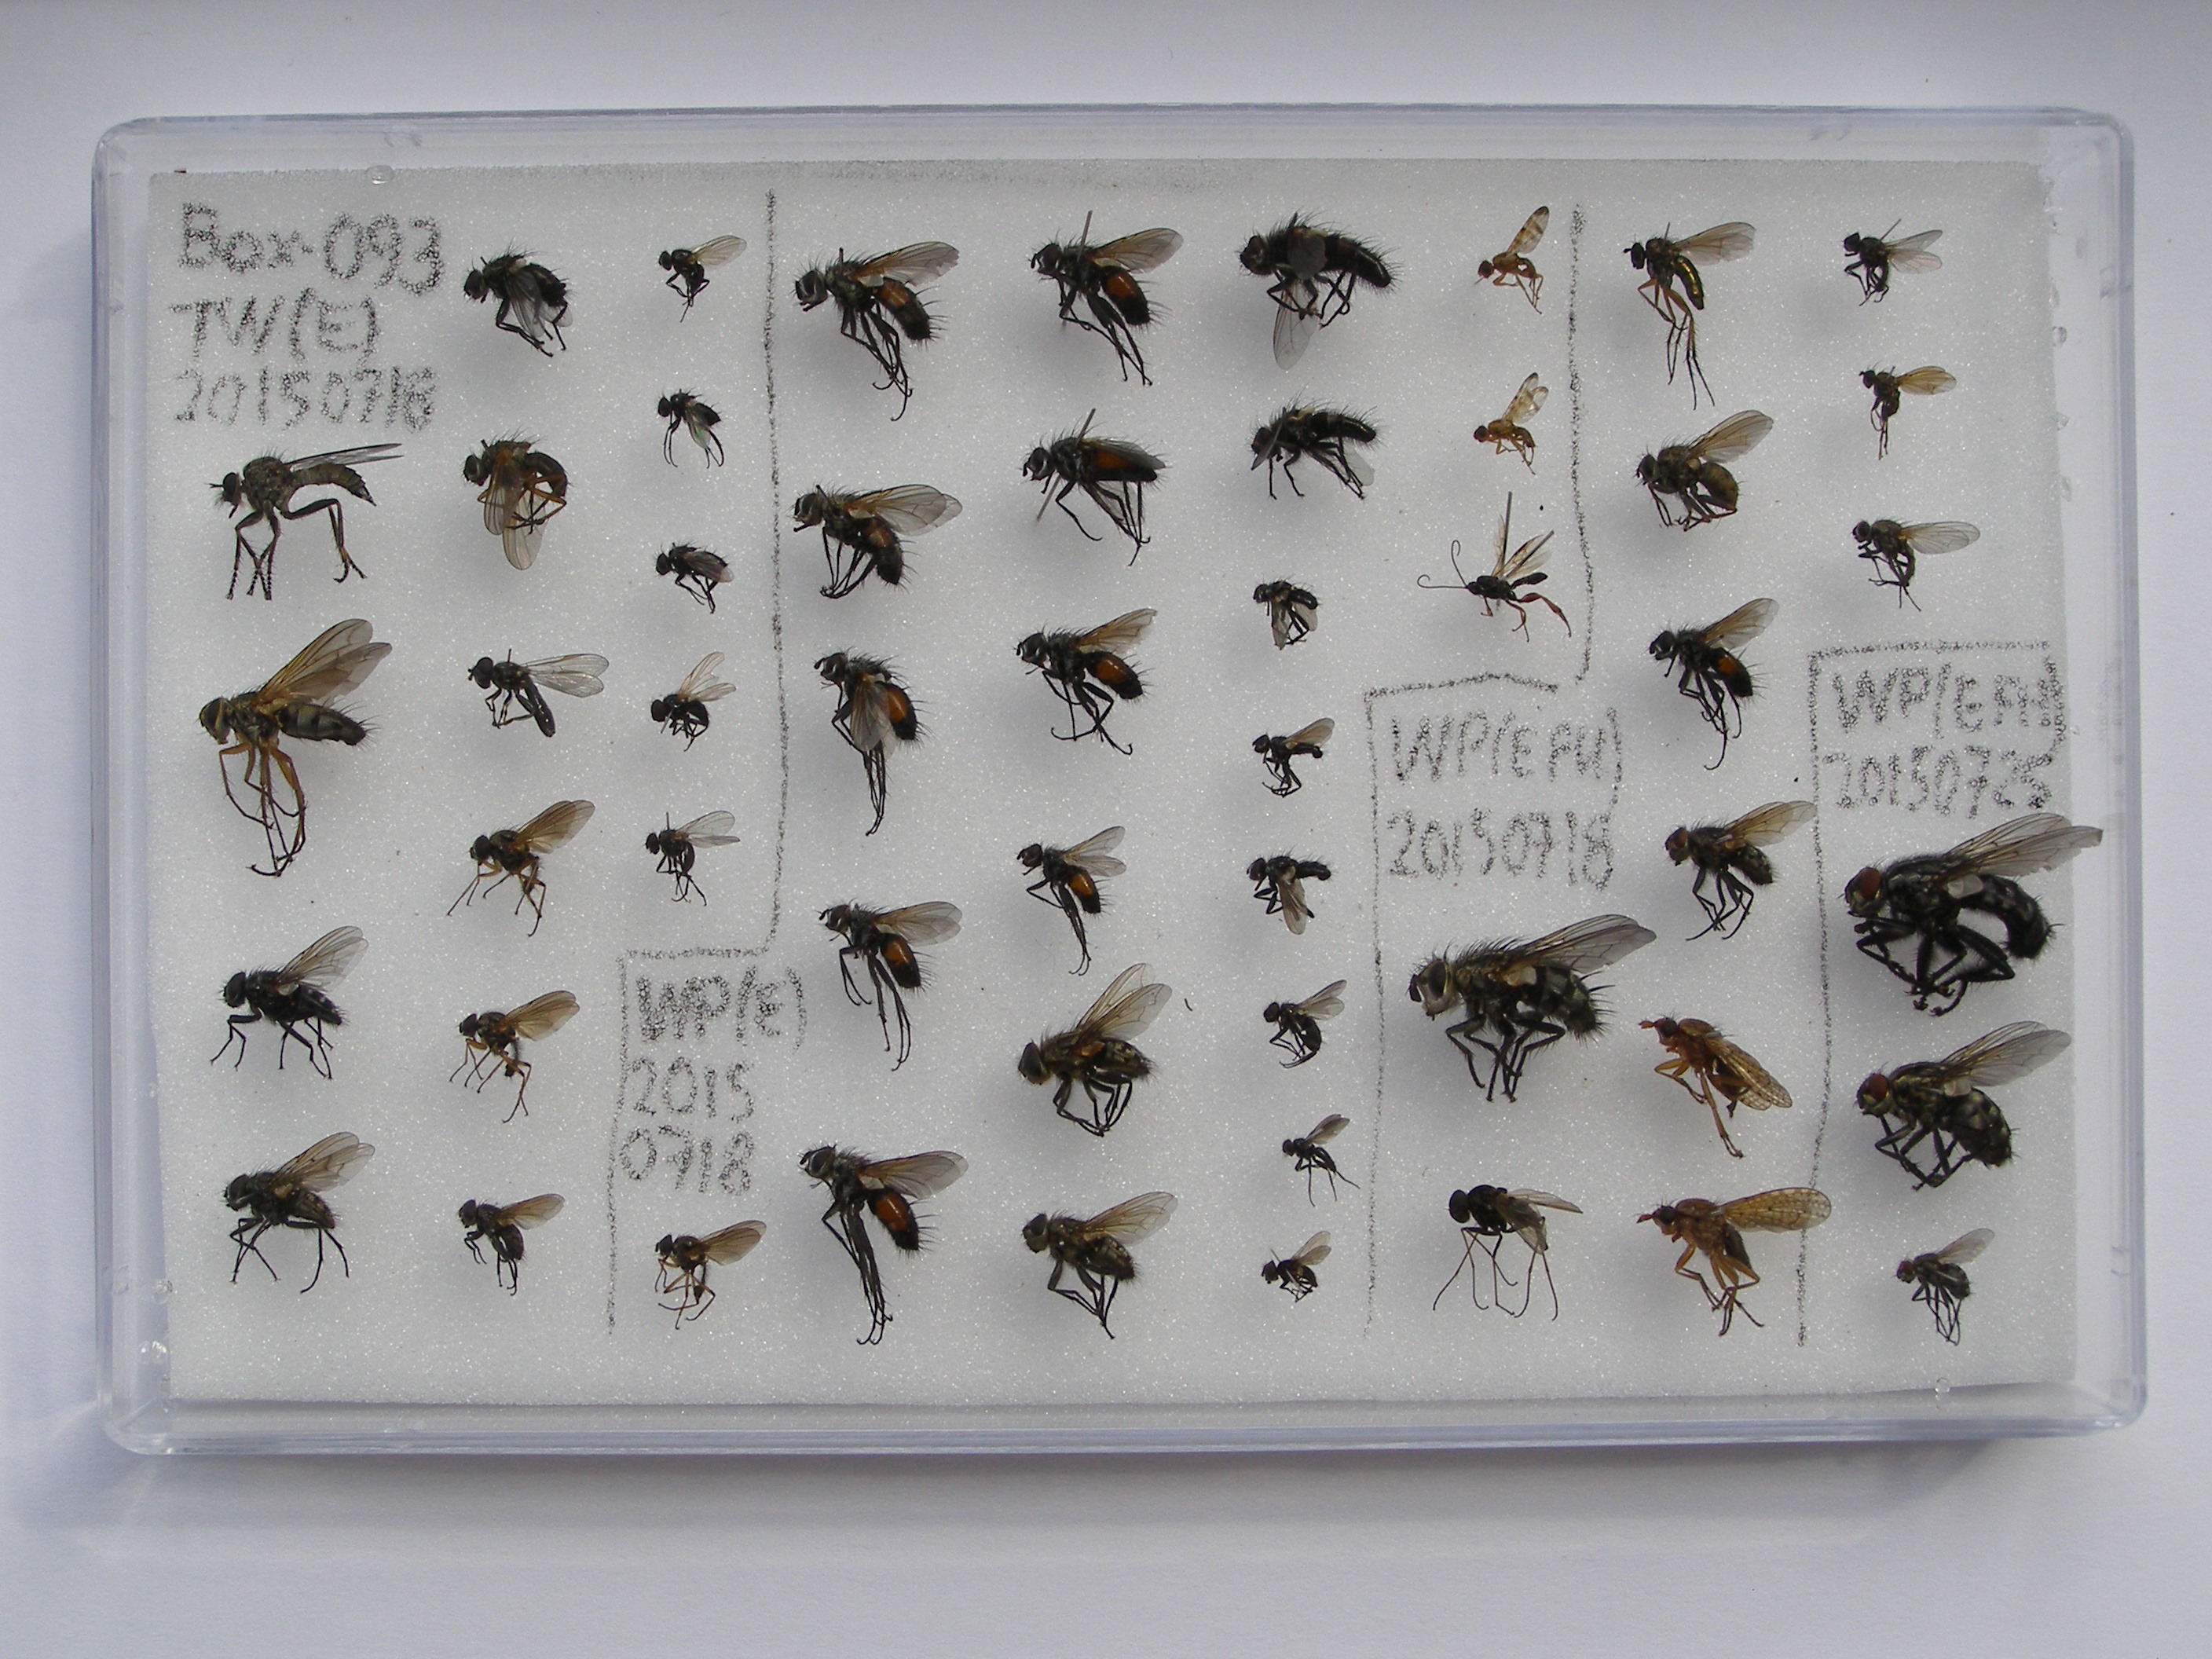 Box-093
TW(E)
20150718
WP(E)
2015
0718
WP(E FH)
20150718
WP(E FH)
20150725